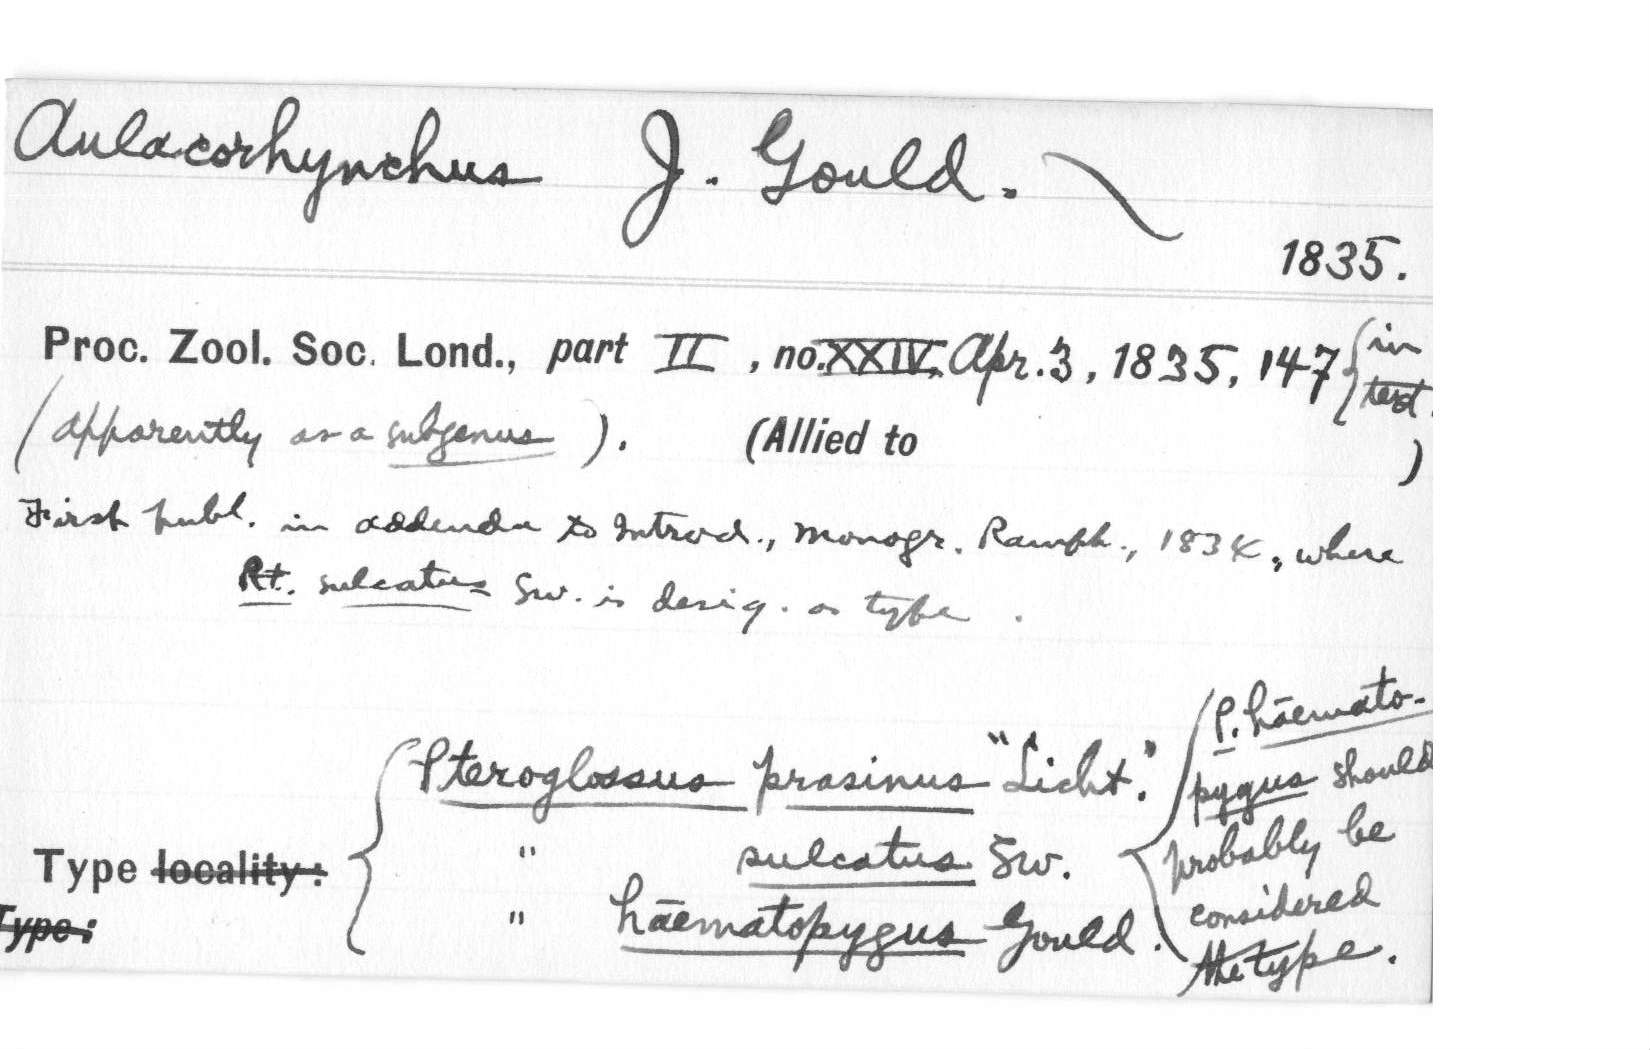 Aulacorhynchus J. Gould.
1835.
Proc. Zool. Soc. Lond., part II, no. XXIV, Apr. 3, 1835, 147 {in text.
(apparently as a subgenus). (Allied to )
First publ. in addenda to Introd., Monogr. Ramph., 1834, where
Pt. sulcatus Sw. is desig. as type.
Pteroglossus prasinus "Licht."
" sulcatus Sw.
" haematopygus Gould.
Type locality:
Type:
P. haemato-
pygus should
probably be
considered
the type.